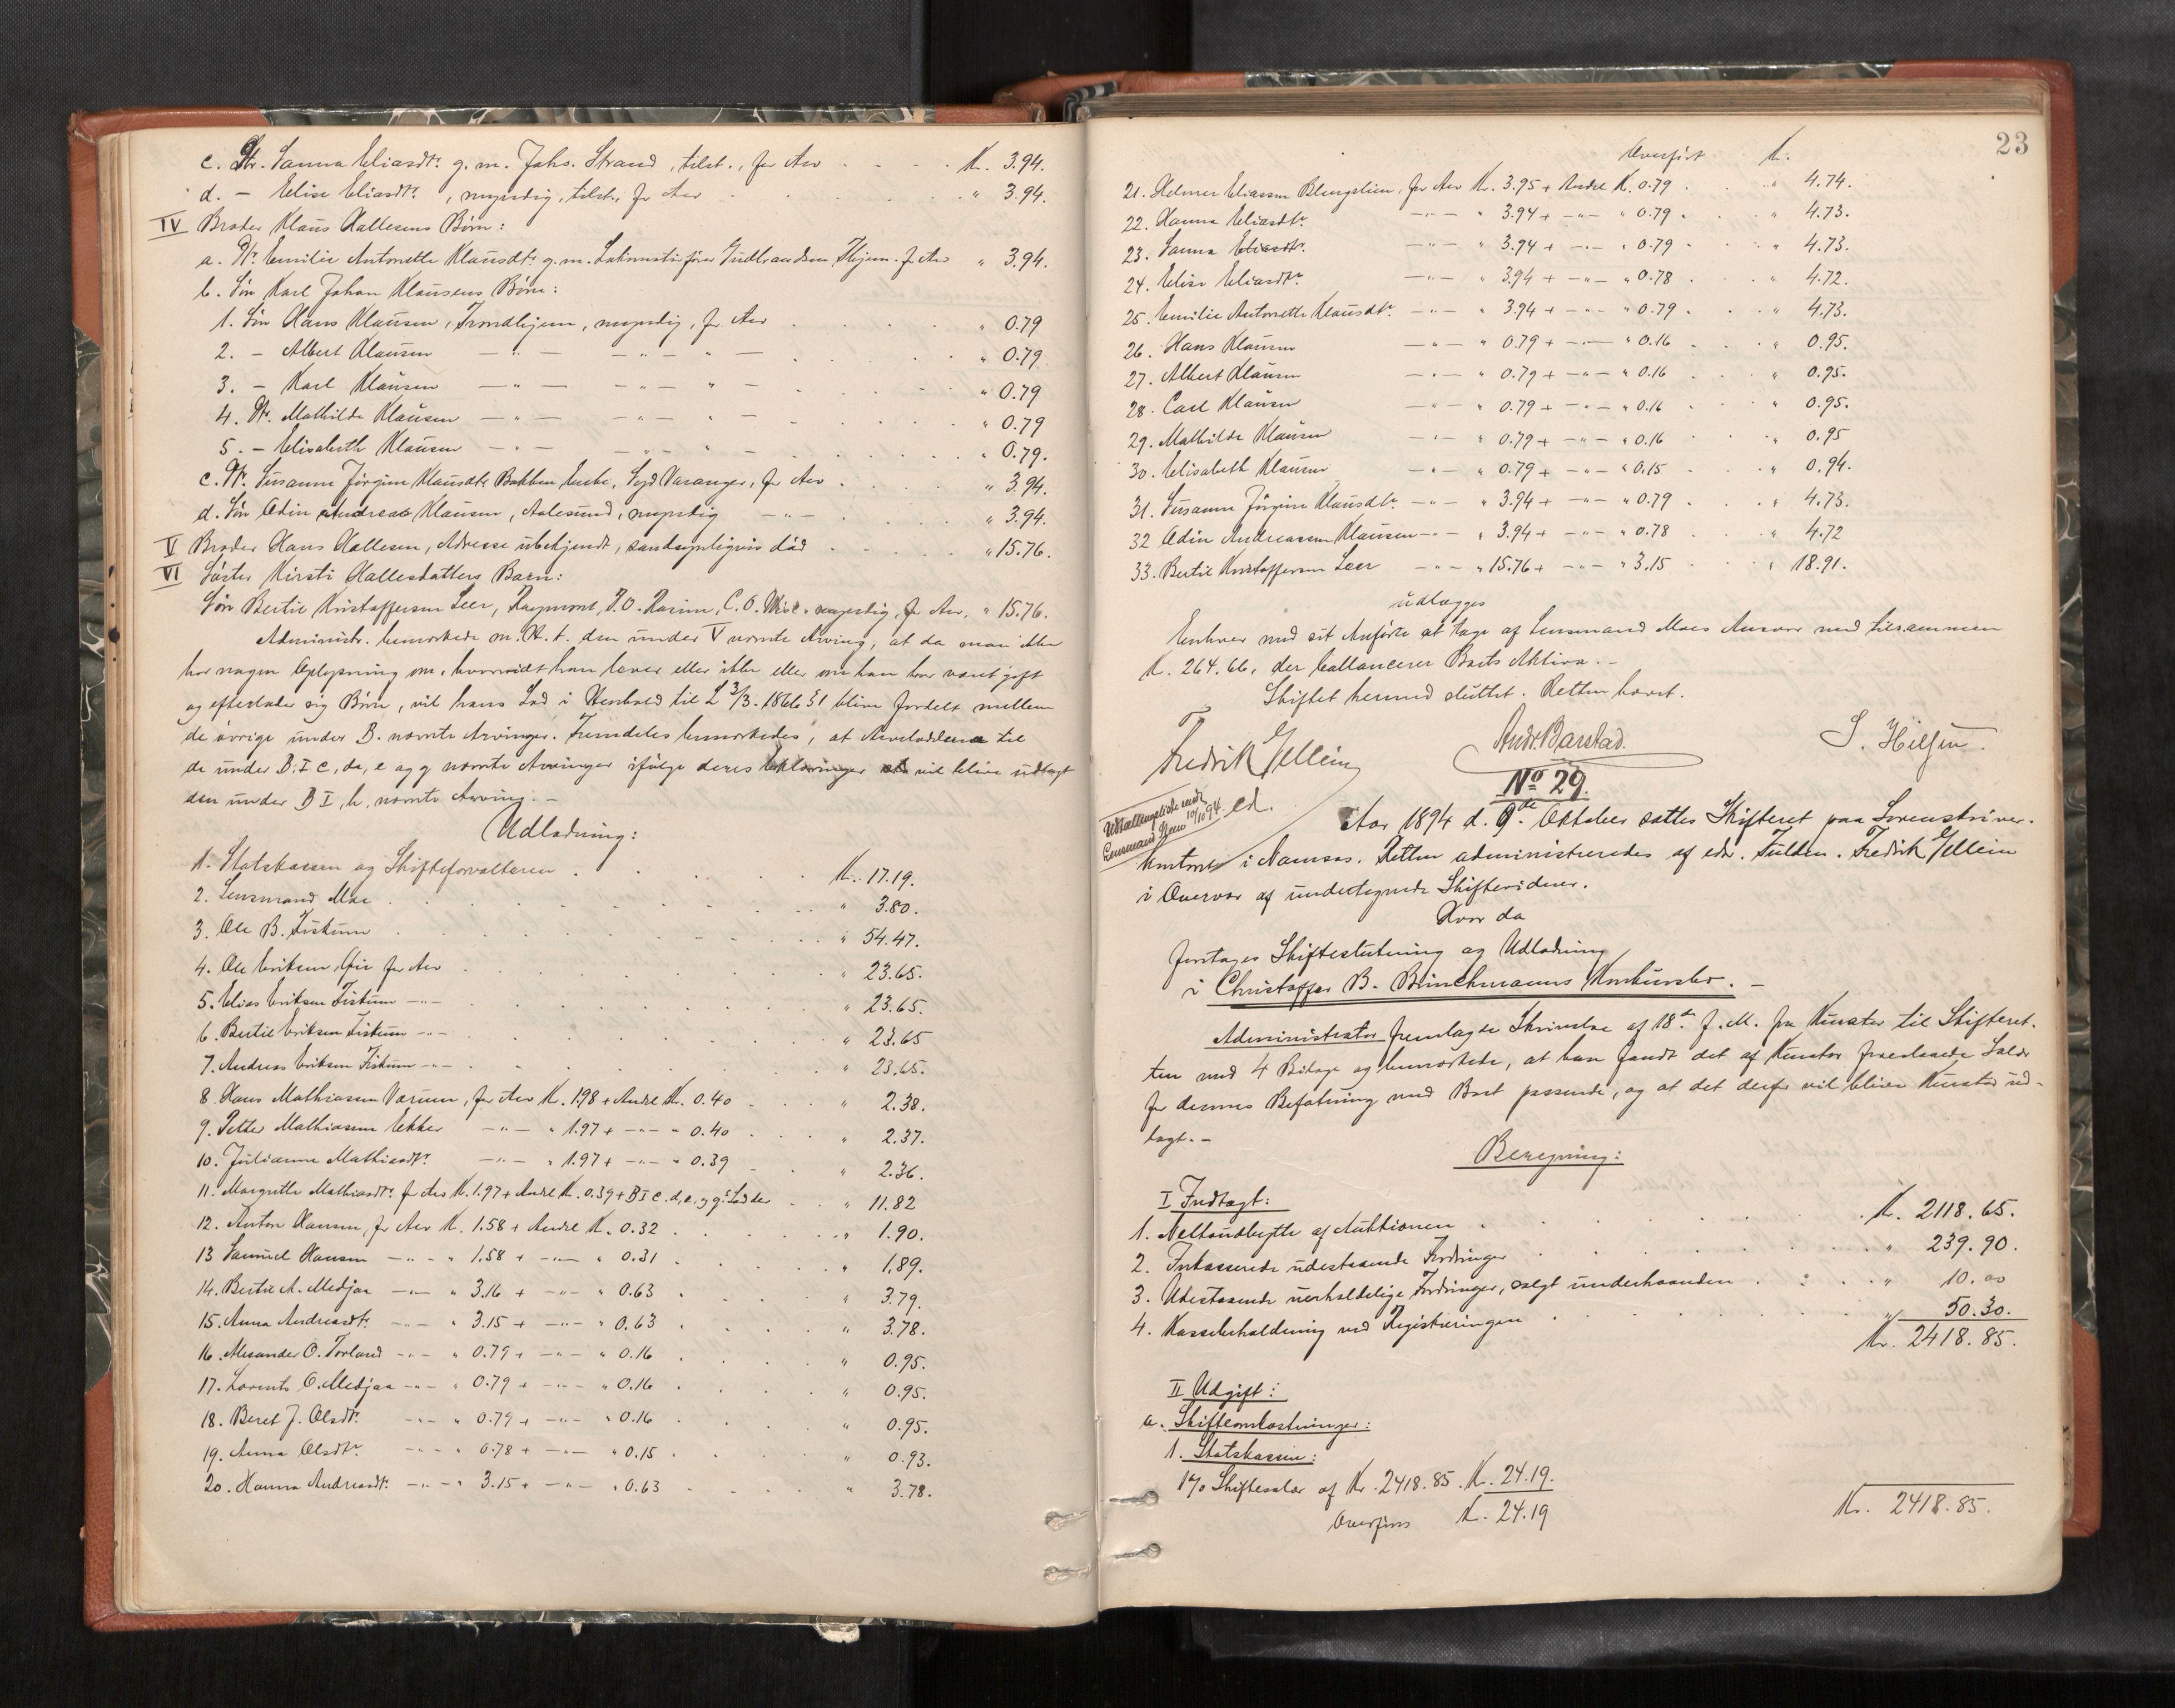 c. Dtr. Sanna Eliasdtr. g. m. Johs. Strand, tilst., for Arv . . . . K. 3.94.
d. — Elise Eliasdtr., myndig, tilst., for Arv . . . . " 3.94.
IV Broder Klaus Hallesens Børn:
a. Dtr. Emilie Antonette Klausdtr. g. m. Lokomotivfører Gudbrandsen Thjem. for Arv " 3.94.
b. Søn Karl Johan Klausens Børn:
1. Søn Hans Klausen, Trondhjem, myndig, for Arv . . . . " 0.79
2. — Albert Klausen — " — — " — " — . . . . " 0.79
3. — Karl Klausen — " — — " — " — . . . . " 0.79
4. Dtr. Mathilde Klausen — " — — " — " — . . . . " 0.79
5. — Elisabeth Klausen — " — — " — " — . . . . " 0.79.
c. Dtr. Susanne Jørgine Klausdtr. Bakken Enke, Syd Varanger, for Arv . . . " 3.94.
d. Søn Odin Andreas Klausen, Aalesund, myndig — " — . . . . " 3.94.
V Broder Hans Hallesen, Adresse ubekjendt, sandsynligvis død . . . . " 15.76.
VI Søster Kirsti Hallesdatters Barn:
Søn Bertil Kristoffersen Leer, Raymont, P.O. Racine, C.O. Wisc. myndig, for Arv, " 15.76.
Administr. bemærkede m. H. t. den under V nævnte Arving, at da man ikke
har nogen Oplysning om, hvorvidt han lever eller ikke eller om han har været gift
og efterlader sig Børn, vil hans Lod i Henhold til L 3/3. 1866 §1 blive fordelt mellem
de øvrige under B. nævnte Arvinger. Fremdeles bemærkedes, at Arvelodderne til
de under B. I c, d, e og g nævnte Arvinger ifølge deres Erklæringer vil blive udlagt
den under B I, h. nævnte Arving. —
Udlodning:
1. Statskassen og Skifteforvalteren . . . . K. 17.19.
2. Lensmand Moe . . . . " 3.80.
3. Ole B. Fiskum . . . . " 54.47.
4. Ole Eriksen, for Arv . . . . " 23.65.
5. Elias Eriksen Fiskum — " — . . . . " 23.65.
6. Bertil Eriksen Fiskum — " — . . . . " 23.65
7. Andreas Eriksen Fiskum — " — . . . . " 23.65.
8. Hans Mathiassen Værum, for Arv K. 1.98 + Andel K. 0.40 . . . " 2.38.
9. Petter Mathiassen Ekker — " — " 1.97 + — " — " 0.40 . . . " 2.37.
10. Julianna Mathiasdtr. — " — " 1.97 + — " — " 0.39 . . . " 2.36.
11. Margrethe Mathiasdtr. for Arv K. 1.97 + Andel K. 0.39 + B I c. d, e, og g's Lodder . . " 11.82
12. Anton Hansen, for Arv K. 1.58 + Andel K. 0.32 . . . . " 1.90.
13 Samuel Hansen — " — " 1.58 + — " — " 0.31 . . . . " 1.89.
14. Bertil A. Medjaa — " — " 3.16 + — " — " 0.63 . . . . " 3.79.
15. Anna Andreasdtr. — " — " 3.15 + — " — " 0.63 . . . . " 3.78.
16. Alexander O. Torland — " — " 0.79 + — " — " 0.16 . . . . " 0.95.
17. Lorents O. Medjaa — " — " 0.79 + — " — " 0.16 . . . . " 0.95.
18. Beret J. Olsdtr. — " — " 0.79 + — " — " 0.16 . . . . " 0.95.
19. Anna Olsdtr. — " — " 0.78 + — " — " 0.15 . . . . " 0.93.
20. Hanna Andreasdtr. — " — " 3.15 + — " — " 0.63 . . . . " 3.78.
23
Overført K.
21. Helmer Eliassen Blengslien, for Arv Kr. 3.95 + Andel K. 0.79 . . " 4.74.
22. Hanna Eliasdtr. — " — " 3.94 + — " — " 0.79 . . " 4.73.
23. Sanna Eliasdtr. — " — " 3.94 + — " — " 0.79 . . " 4.73.
24. Elise Eliasdtr. — " — " 3.94 + — " — " 0.78 . . " 4.72.
25. Emilie Antonette Klausdtr. — " — " 3.94 + — " — " 0.79 . . " 4.73.
26. Hans Klausen — " — " 0.79 + — " — " 0.16 . . " 0.95.
27. Albert Klausen — " — " 0.79 + — " — " 0.16 . . " 0.95.
28. Carl Klausen — " — " 0.79 + — " — " 0.16 . . " 0.95.
29. Mathilde Klausen — " — " 0.79 + — " — " 0.16 . . " 0.95
30. Elisabeth Klausen — " — " 0.79 + — " — " 0.15 . . " 0.94.
31. Susanne Jørgine Klausdtr. — " — " 3.94 + — " — " 0.79 . . " 4.73.
32 Odin Andreassen Klausen — " — " 3.94 + — " — " 0.78 . . " 4.72
33. Bertil Kristoffersen Leer — " — " 15.76 + — " — " 3.15 . . " 18.91.
udlægges
Enhver med sit Anførte at tage af Lensmand Moes Ansvar med tilsammen
K. 264.66, der ballancerer Boets Aktiva. —
Skiftet hermed sluttet. Retten hævet.
Fredrik Gellein
Andr. Barstad.
S. Hilsen.
No 29.
Udtællingsliste sendt
Lensmand 10/10 94
ed.
Aar 1894 d. 9de Oktober sattes Skifteret paa Sorenskriver-
kontoret i Namsos. Retten administreredes af edv. Fuldm. Fredrik Gellein
i Overvær af undertegnede Skiftevidner.
Hvor da
foretages Skifteslutning og Udlodning
i Christoffer B. Brinchmanns Konkursbo. —
Administrator fremlagde Skrivelse af 18de f. M. fra Kurator til Skifteret-
ten med 4 Bilage og bemærkede, at han fandt det af Kurator foreslaaede Salær
for dennes Befatning med Boet passende, og at det derfor vil blive Kurator ud-
lagt. —
Beregning:
I Indtægt:
1. Nettoudbytte af Auktionen . . . . K. 2118.65.
2. Inkasserede udestaaende Fordringer . . . . " 239.90.
3. Udestaaende uerholdelige Fordringer, solgt underhaanden . . . . " 10.00
4. Kassebeholdning ved Registreringen . . . . " 50.30.
Kr. 2418.85.
II Udgift:
a. Skifteomkostninger:
1. Statskassen:
1% Skiftesalær af Kr. 2418.85. K. 24.19.
Overføres K. 24.19
Kr. 2418.85.